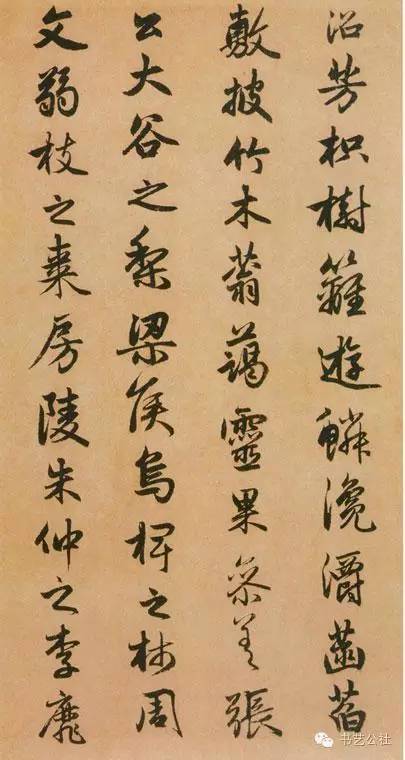 沼芳枳樹籬遊鱗瀺灂菡萏
敷披竹木蓊藹靈果參差張
公大谷之梨梁侯烏椑之柿周
文弱枝之棗房陵朱仲之李靡
书艺公社